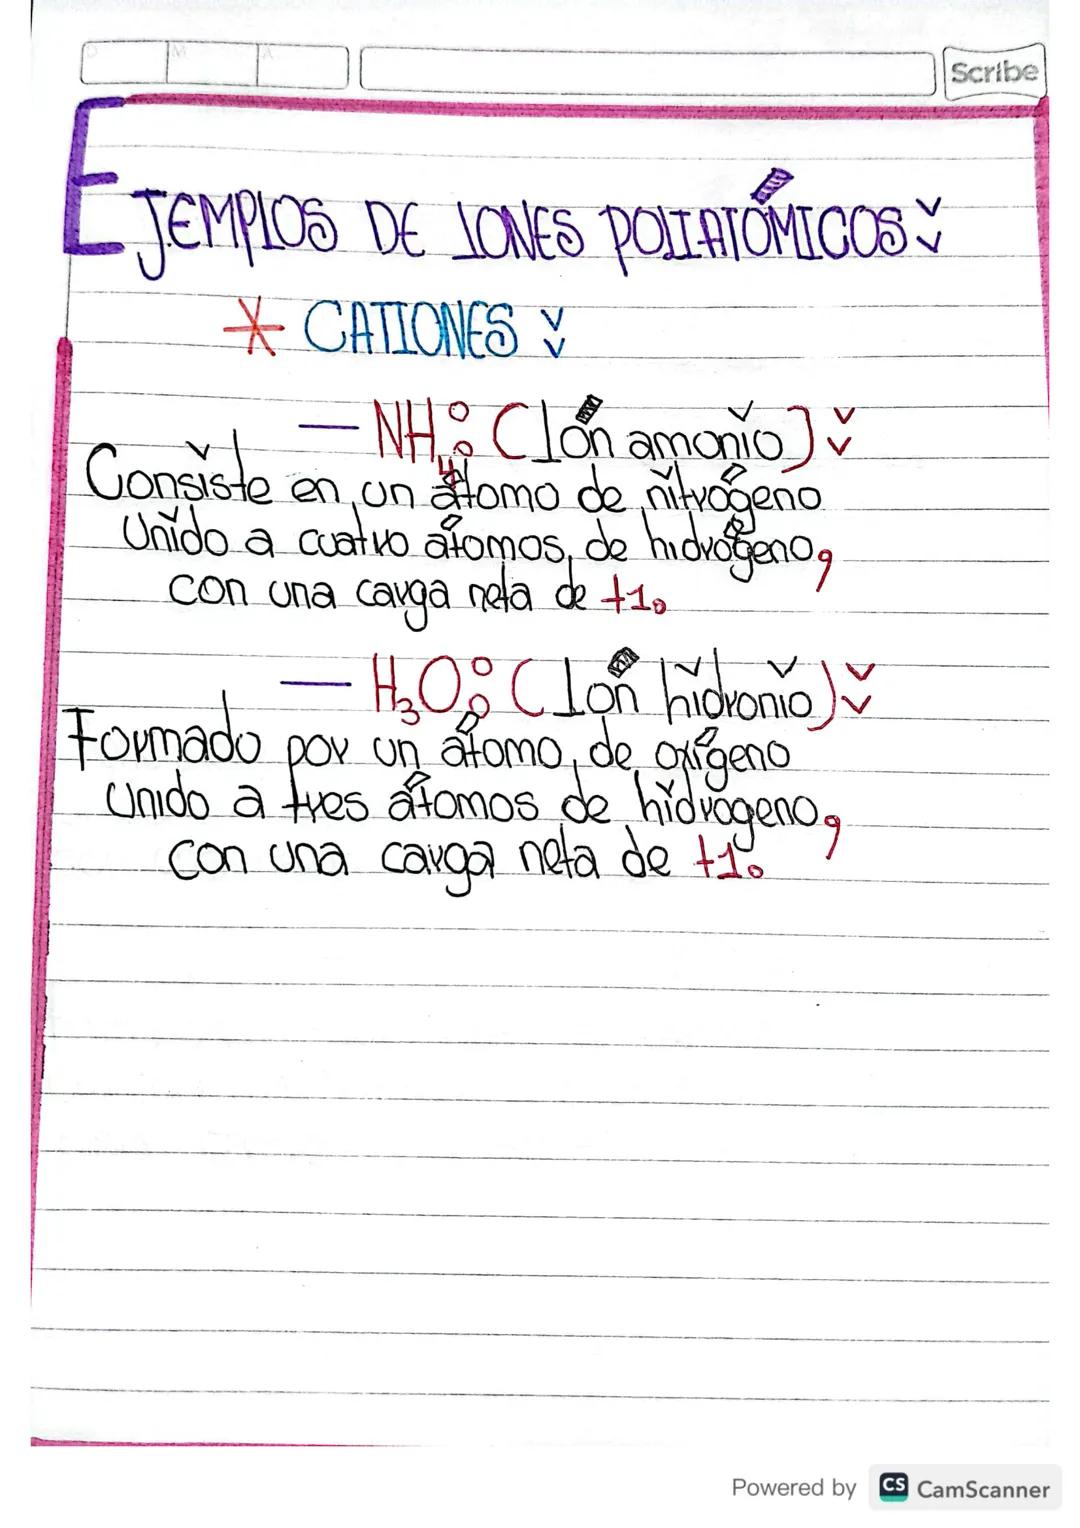 D M A
Scribe
EJEMPLOS DE IONES POLIATÓMICOS:
* CATIONES:
— NH₄: (Ión amonio):
Consiste en un átomo de nitrógeno
Unido a cuatro átomos, de hidrógeno,
con una carga neta de +1.
— H₃O: (Ión hidronio):
Formado por un átomo, de oxígeno
Unido a tres átomos de hidrogeno,
con una carga neta de +1.
Powered by CS CamScanner